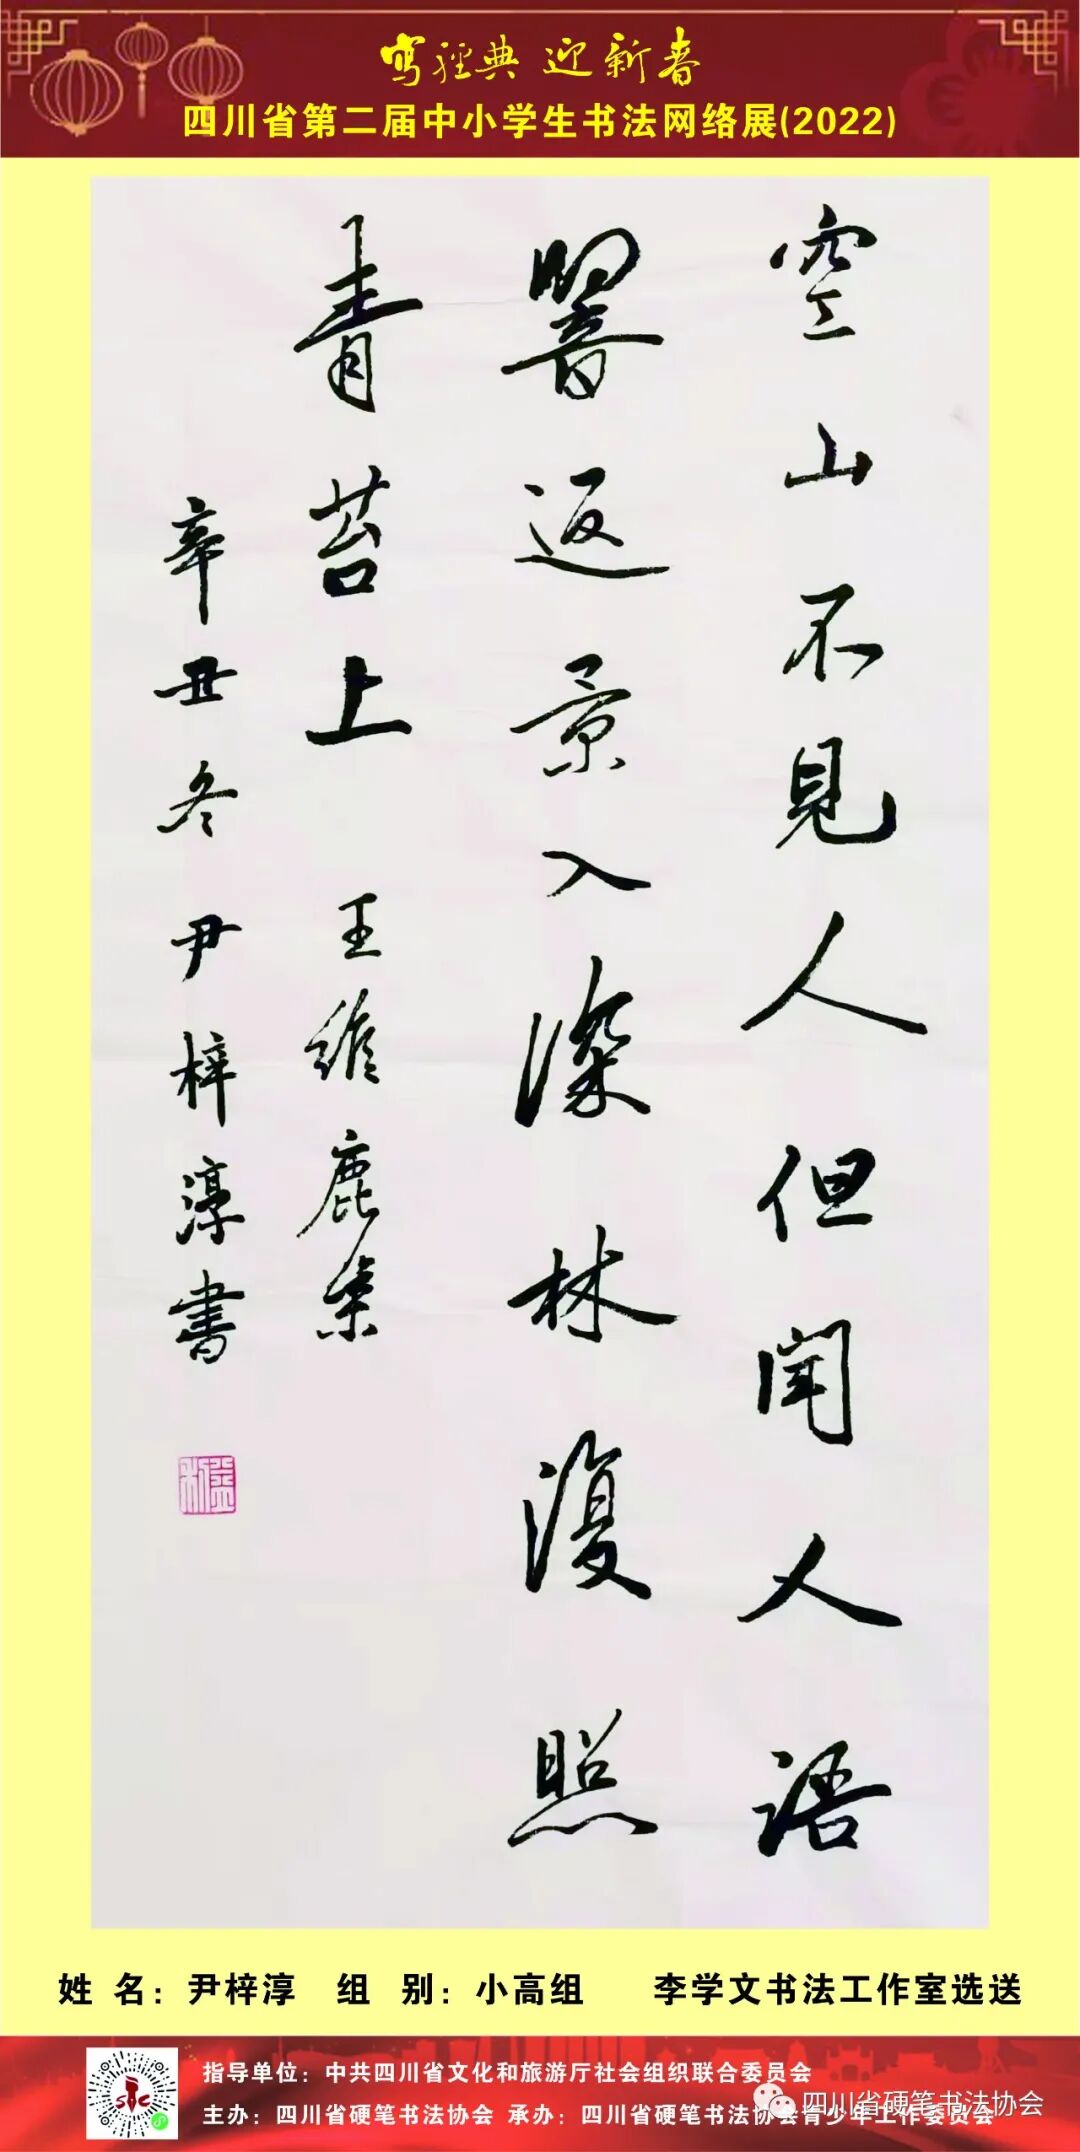 写经典 迎新春
四川省第二届中小学生书法网络展(2022)
空山不見人但闻人语
響返景入深林復照
青苔上 王維鹿柴
辛丑冬尹梓淳書
姓 名：尹梓淳 组 别：小高组 李学文书法工作室选送
指导单位：中共四川省文化和旅游厅社会组织联合委员会
主办：四川省硬笔书法协会 承办：四川省硬笔书法协会青少年工作委员会
四川省硬笔书法协会